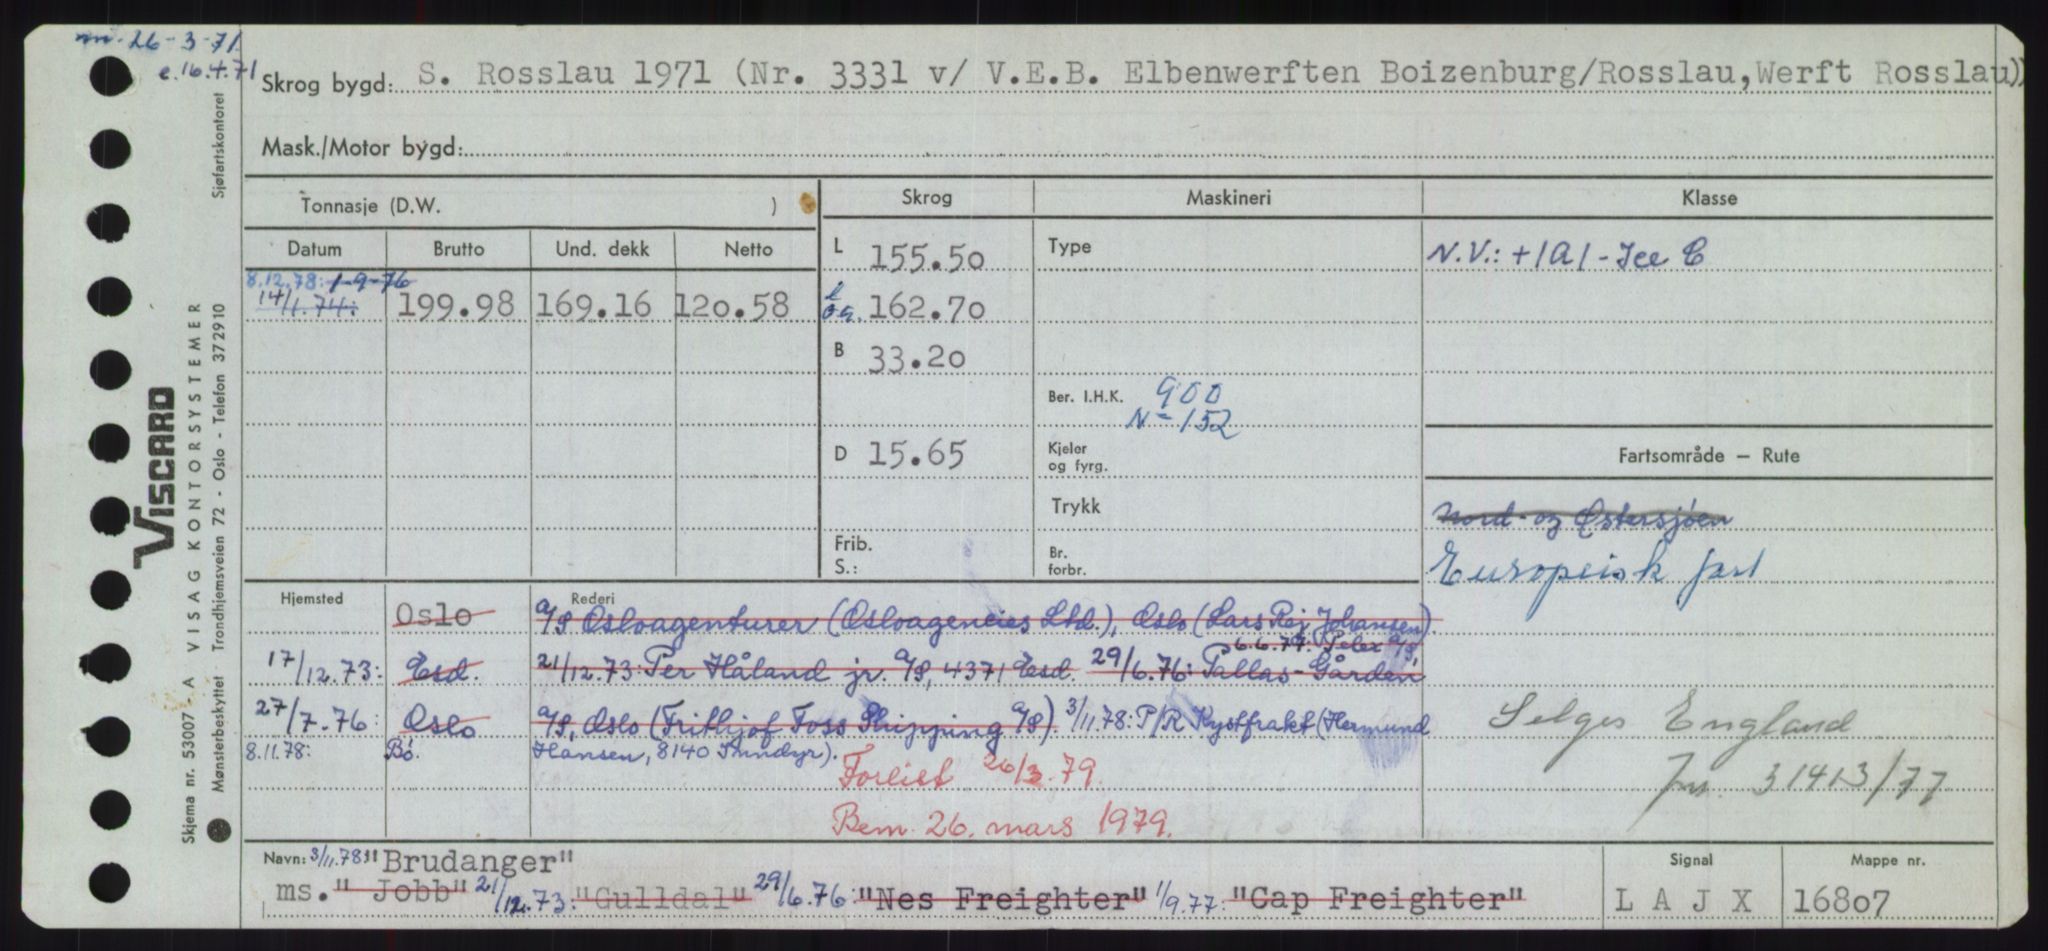 nn. 26-3-71.
e. 16.4.71
Skrog bygd: S. Rosslau 1971 (Nr. 3331 v/ V.E.B. Elbenwerften Boizenburg/Rosslau, Werft Rosslau)
Mask./Motor bygd:
Tonnasje (D.W. )
Skrog Maskineri Klasse
Datum Brutto Und. dekk Netto
8.12.78: 1-9-76
14/1.74: 199.98 169.16 120.58
L 155.50
l o.a. 162.70
B 33.20
D 15.65
Frib. S.:
Type
Ber. I.H.K. 900
N = 152
Kjeler og fyrg.
Trykk
Br. forbr.
N.V.: +1A1 - Ice C
Fartsområde — Rute
Nord- og Østersjøen
Europeisk fart
Selges England
Jnr. 31413/77
Hjemsted Rederi
Oslo A/S Osloagenturer (Osloagencies Ltd.), Oslo (Lars Rej Johansen).
6.6.77: Pelex A/S,
17/12.73: Egsd. 21/12.73: Per Håland jr. A/S, 4371 Egsd. 29/6.76: Pallas-Gården
27/7-76: Oslo A/S, Oslo (Frithjof Foss Shipping A/S). 3/11.78: P/R Kystfrakt (Hermund
8.11.78: Bö. Hansen, 8140 Inndyr).
Forlist 26/3.79.
Bem. 26. mars 1979.
Navn: 3/11.78: "Brudanger"
ms. " Jobb" 21/12.73: "Gulldal" 29/6.76: "Nes Freighter" 1/9.77: "Cap Freighter"
Signal
L A J X
Mappe nr.
16807
VISCARD
VISAG KONTORSYSTEMER
Skjema nr. 53007 - A
Mønsterbeskyttet Trondhjemsveien 72 - Oslo - Telefon 372910
Sjøfartskontoret